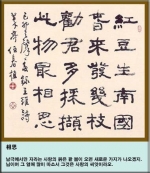 紅豆生南國
春來發幾枝
勸君多采擷
此物最相思
王維詩
相思
남국에서만 자라는 사랑의 붉은 콩 봄이 오면 새로운 가지가 나오겠지.
님이여 그 열매 많이 따소서 그것은 사랑의 씨앗이라오.